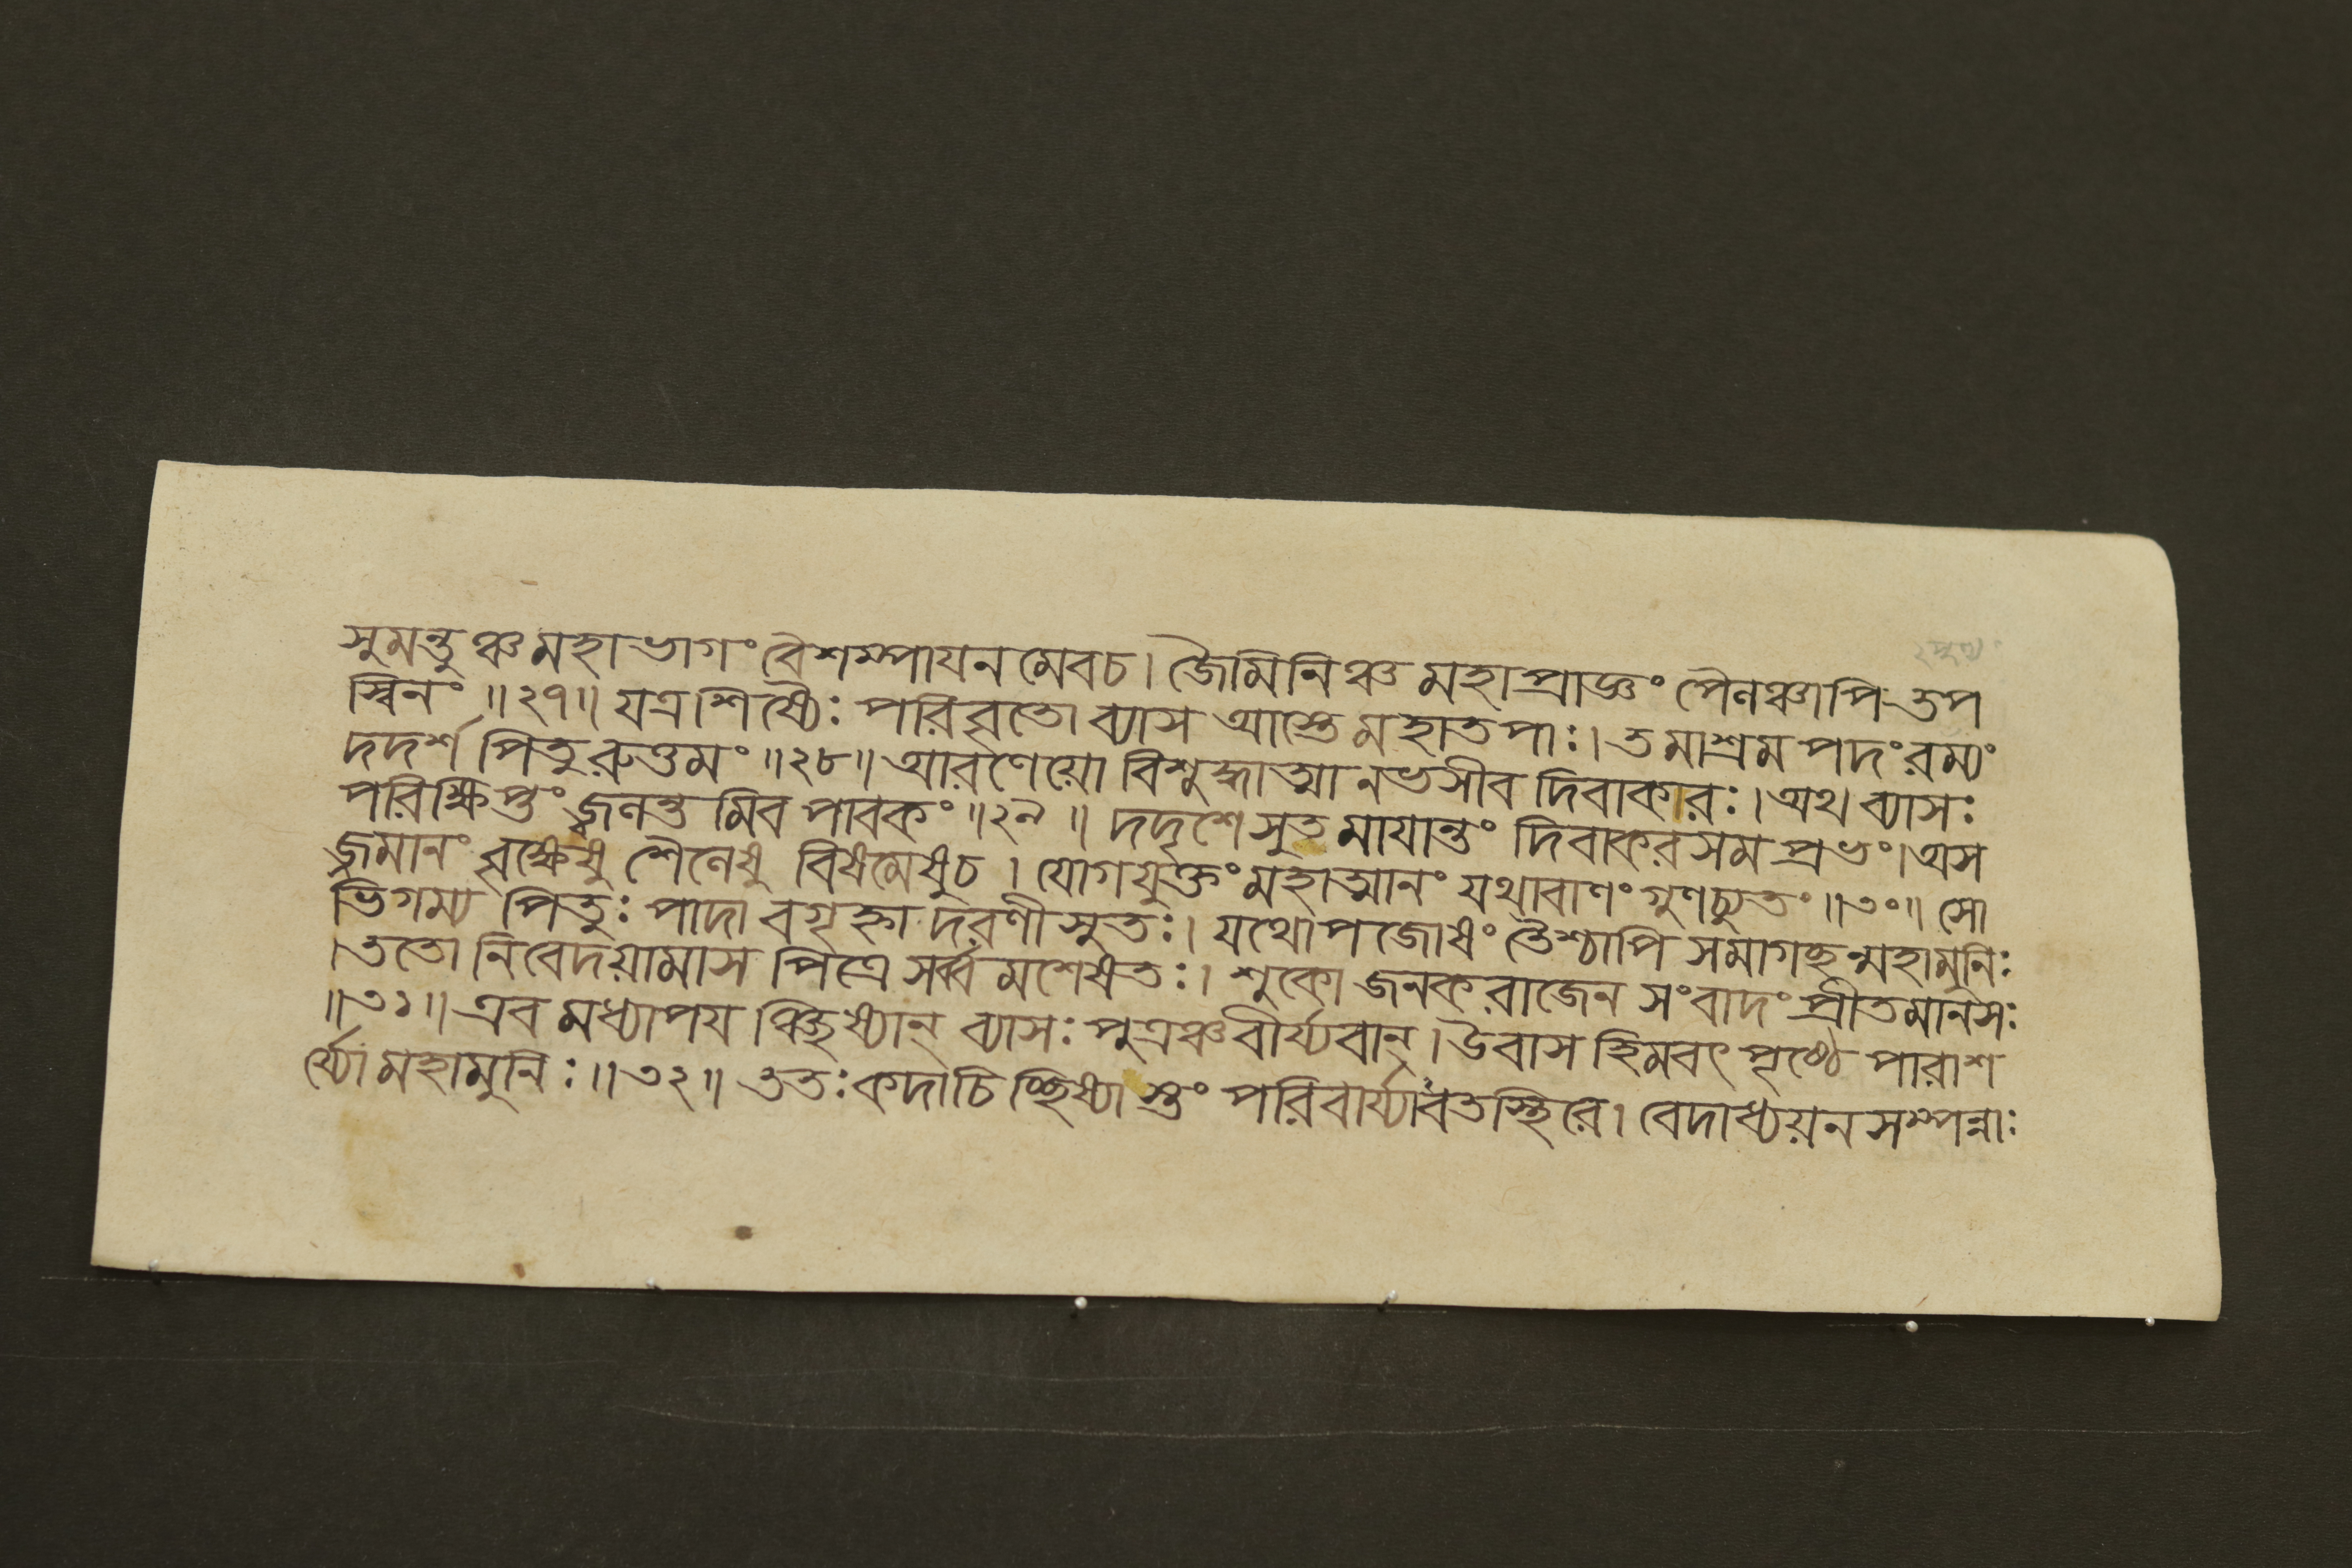 সুমন্তুঞ্চ মহাভাগং বৈশম্পাযনমেবচ। জৈমিনিঞ্চ মহাপ্রাজ্ঞং পৈলঞ্চাপি তপ
স্বিনং ॥২৭॥ যত্র শিষ্যৈঃ পরিবৃতো ব্যাস আস্তে মহাতপাঃ। তমাশ্রমপদং রম্যং
দদর্শ পিতুরুত্তমং ॥২৮॥ আরণেয়ো বিশুদ্ধাত্মা নভসীব দিবাকারঃ। অথ ব্যাসঃ
পরিক্ষিপ্তং জ্বলন্তমিব পাবকং ॥২৯॥ দদৃশে সুতমাযান্তং দিবাকরসমপ্রভং। অস
জ্জমানং বৃক্ষেষু শৈলেষু বিষমেষুচ। যোগযুক্তং মহাত্মানং যথাবাণং গুণচ্যুতং ॥৩০॥ সো
ভিগম্য পিতুঃ পাদাবগৃহ্ণাদরণীসুতঃ। যথোপজোষং তৈশ্চাপি সমাগচ্ছন্মহামুনিঃ
। ততো নিবেদয়ামাস পিত্রে সর্ব্বমশেষতঃ। শুকো জনকরাজেন সংবাদং প্রীতমানসঃ
॥৩১॥ এবমধ্যাপযঞ্ছিষ্যান্ ব্যাসঃ পুত্রঞ্চ বীর্য্যবান্। উবাস হিমবৎপৃষ্ঠে পারাশ
র্য্যো মহামুনিঃ ॥৩২॥ ততঃ কদাচিচ্ছিষ্যাস্তং পরিবার্য্যাবতস্থিরে। বেদাধ্যয়নসম্পন্নাঃ